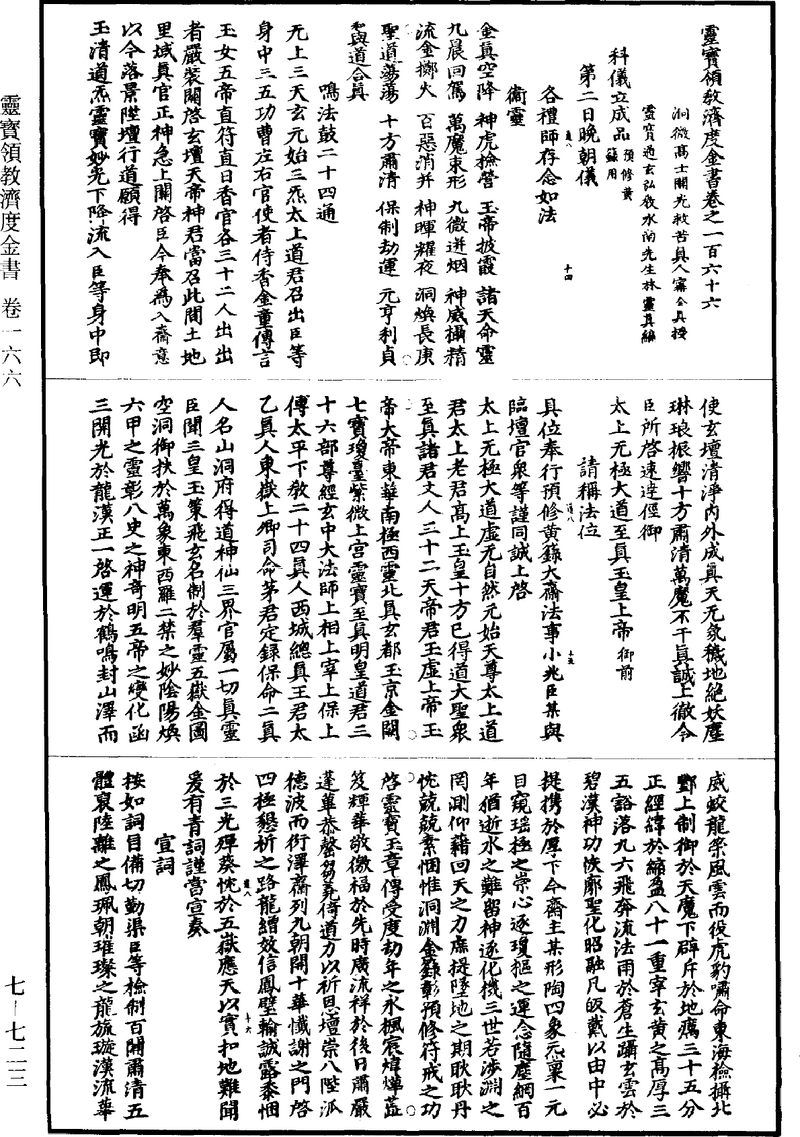 靈寶領教濟度金書卷之一百六十六
洞微高士開光救苦真人甯全真授
靈寶通玄弘教水南先生林靈真編
科儀立成品 預修黃籙用
第二日晚朝儀
各禮師存念如法
衛靈
金真空降 神虎檢營 玉帝披霞 諸天命靈
九晨回駕 萬魔束形 九微迸烟 神威攝精
流金擲火 百惡消并 神暉耀夜 洞煥長庚
聖道蕩蕩 十方肅清 保制劫運 元亨利貞
和與道合真
鳴法鼓二十四通
无上三天玄元始三炁太上道君召出臣等
身中三五功曹左右官使者侍香金童傳言
玉女五帝直符直日香官各三十二人出出
者嚴裝關啓玄壇天帝神君當召此間土地
里域真官正神急上關啓臣今奉為入齋意
以今落景陞壇行道願得
玉清道炁靈寶妙光下降流入臣等身中即
使玄壇清淨內外成真天无氛穢地絕妖塵
琳琅振響十方肅清萬魔不干真誠上徹令
臣所啓速達徑御
太上无極大道至真玉皇上帝 御前
請稱法位
具位奉行預修黃籙大齋法事小兆臣某與
臨壇官眾等謹同誠上啓
太上无極大道虛无自然元始天尊太上道
君太上老君高上玉皇十方已得道大聖眾
至真諸君丈人三十二天帝君玉虛上帝玉
帝大帝東華南極西靈北真玄都玉京金闕
七寶瓊臺紫微上宮靈寶至真明皇道君三
十六部尊經玄中大法師上相上宰上保上
傅太平下教二十四真人西城總真王君太
乙真人東嶽上卿司命茅君定錄保命二真
人名山洞府得道神仙三界官屬一切真靈
臣聞三皇玉策飛玄名制於羣靈五嶽金圖
空洞御扶於萬象東西羅二禁之妙陰陽煥
六甲之靈彰八史之神奇明五帝之變化函
三開光於龍漢正一啓運於鶴鳴封山澤而
威蛟龍策風雲而役虎豹嘯命東海檢攝北
酆上制御於天魔下辟斥於地癘三十五分
正經緯於縮盈八十一重宰玄黃之高厚三
五豁落九六飛奔流法用於蒼生躡玄雲於
碧漢神功恢廓聖化昭融凡皈戴以由中必
提携於壓下今齋主某形陶四象炁稟一元
目窺瑤極之崇心逐瓊樞之運念隨塵網百
年猶逝水之難留神逐化機三世若涉淵之
罔測仰籍回天之力庶提墜地之期耿耿丹
忱兢兢素悃惟洞淵金籙彰預修符戒之功
啓靈寶玉章傳受度劫年之永楓宸煒燁蓝
笈輝華敬徼福於先時廣流祥於後日肅嚴
蓬蓽恭罄芻蕘倚道力以祈恩壇崇八陛派
德波而衍澤齋列九朝開十華懺謝之門啓
四極懇祈之路龍繒效信鳳璧輸誠露黍悃
於三光殫葵忱於五嶽應天以實扣地難聞
爰有青詞謹當宣奏
宣詞
按如詞目備切勤渠臣等檢制百關肅清五
體襄陸離之鳳珮朝璀璨之龍旂璇漢流華
靈寶領教濟度金書 卷一六六
七-七二三